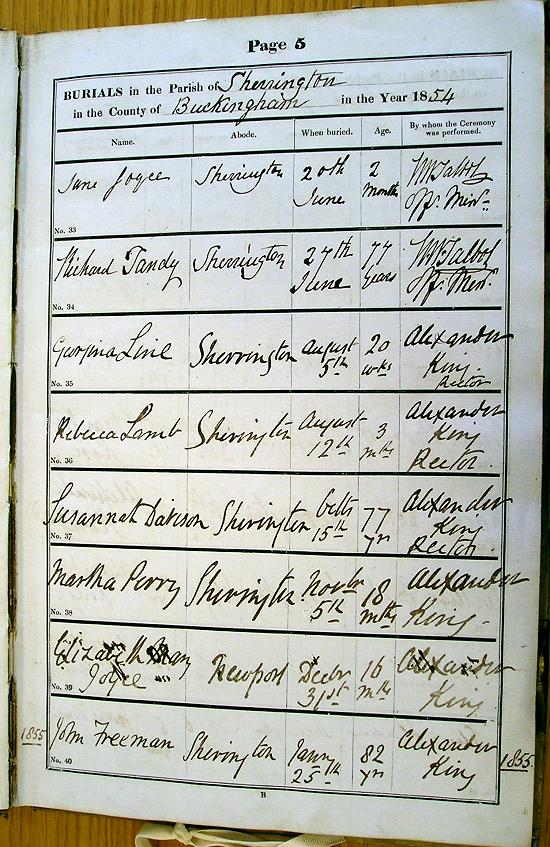 Page 5
BURIALS in the Parish of Sherrington
in the County of Buckingham in the Year 1854
Name. Abode. When buried. Age. By whom the Ceremony was performed.
Jane Joyce Sherrington 20th 2 Wm Talbot
June Months Off. Minr.
No. 33
Richard Tandy Sherrington 27th 77 Wm Talbot
June years Off. Minr.
No. 34
Georgina Line Sherrington August 20 Alexander
5th wks King
No. 35 Rector
Rebecca Lamb Sherington August 3 Alexander
12th mths King
No. 36 Rector
Susannah Davison Sherington Octbr 77 Alexander
15th yrs King
No. 37 Rector
Martha Perry Sherington Novbr 18 Alexander
5th mths King
No. 38
Elizabeth Mary Newport Decbr 16 Alexander
Joyce 31st mths King
No. 39
1855 John Freeman Sherington Jany 82 Alexander 1855
25th yrs King
No. 40
B